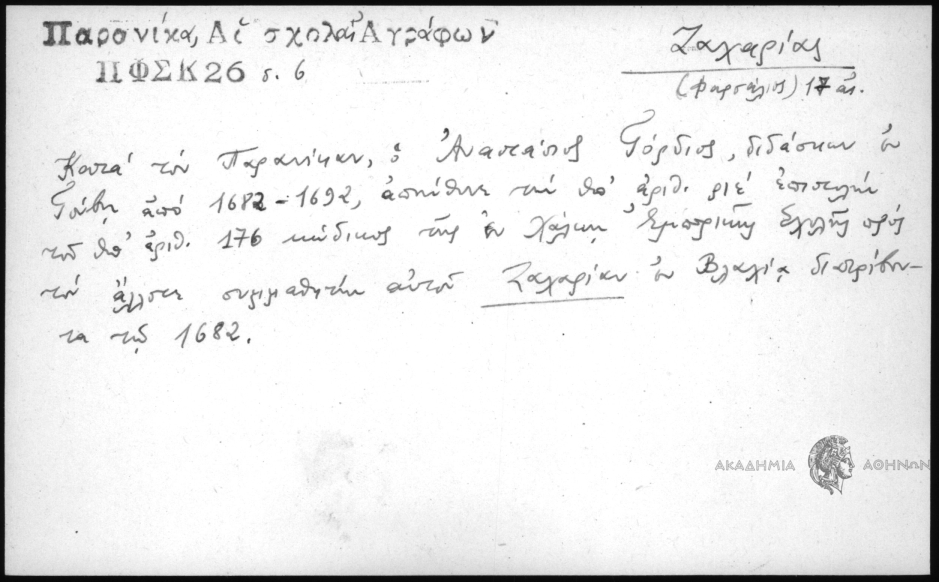 Παρανίκα, Αἱ σχολαὶ Ἀγράφων
ΠΦΣΚ26 σ. 6
Ζαχαρίας
(Φαρσάλιος) 17 αἰ.
Κατά τόν Παρανίκαν, ὁ Ἀναστάσιος Γόρδιος, διδάσκων ἐν
Γούβῃ ἀπό 1682-1692, ἀπηύθυνε τήν ὑπ' ἀριθ. ριέ ἐπιστολήν
τοῦ ὑπ' ἀριθ. 176 κώδικος τῆς ἐν Χάλκῃ Ἐμπορικῆς Σχολῆς πρός
τόν ἄλλοτε συμμαθητήν αὐτοῦ Ζαχαρίαν ἐν Βλαχίᾳ διατρίβον-
τα τῷ 1682.
ΑΚΑΔΗΜΙΑ ΑΘΗΝΩΝ